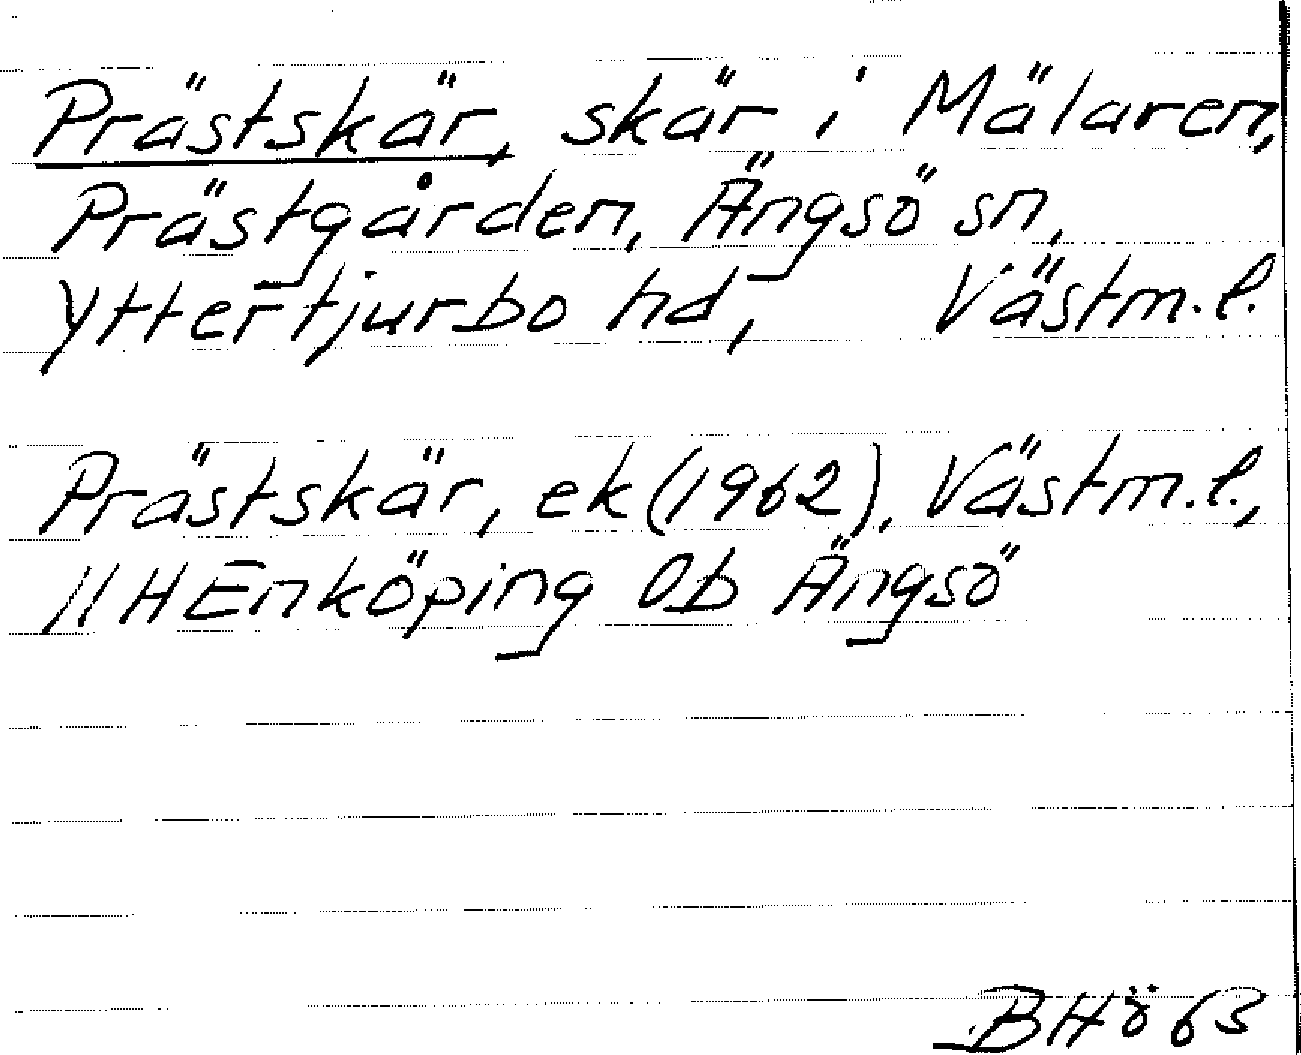 Prästskär, skär i Mälaren,
Prästgården, Ängsö sn,
Yttertjurbo hd, Västm.l.
Prästskär, ek (1962), Västm.l.,
11HEnköping 0b Ängsö
BHö 63